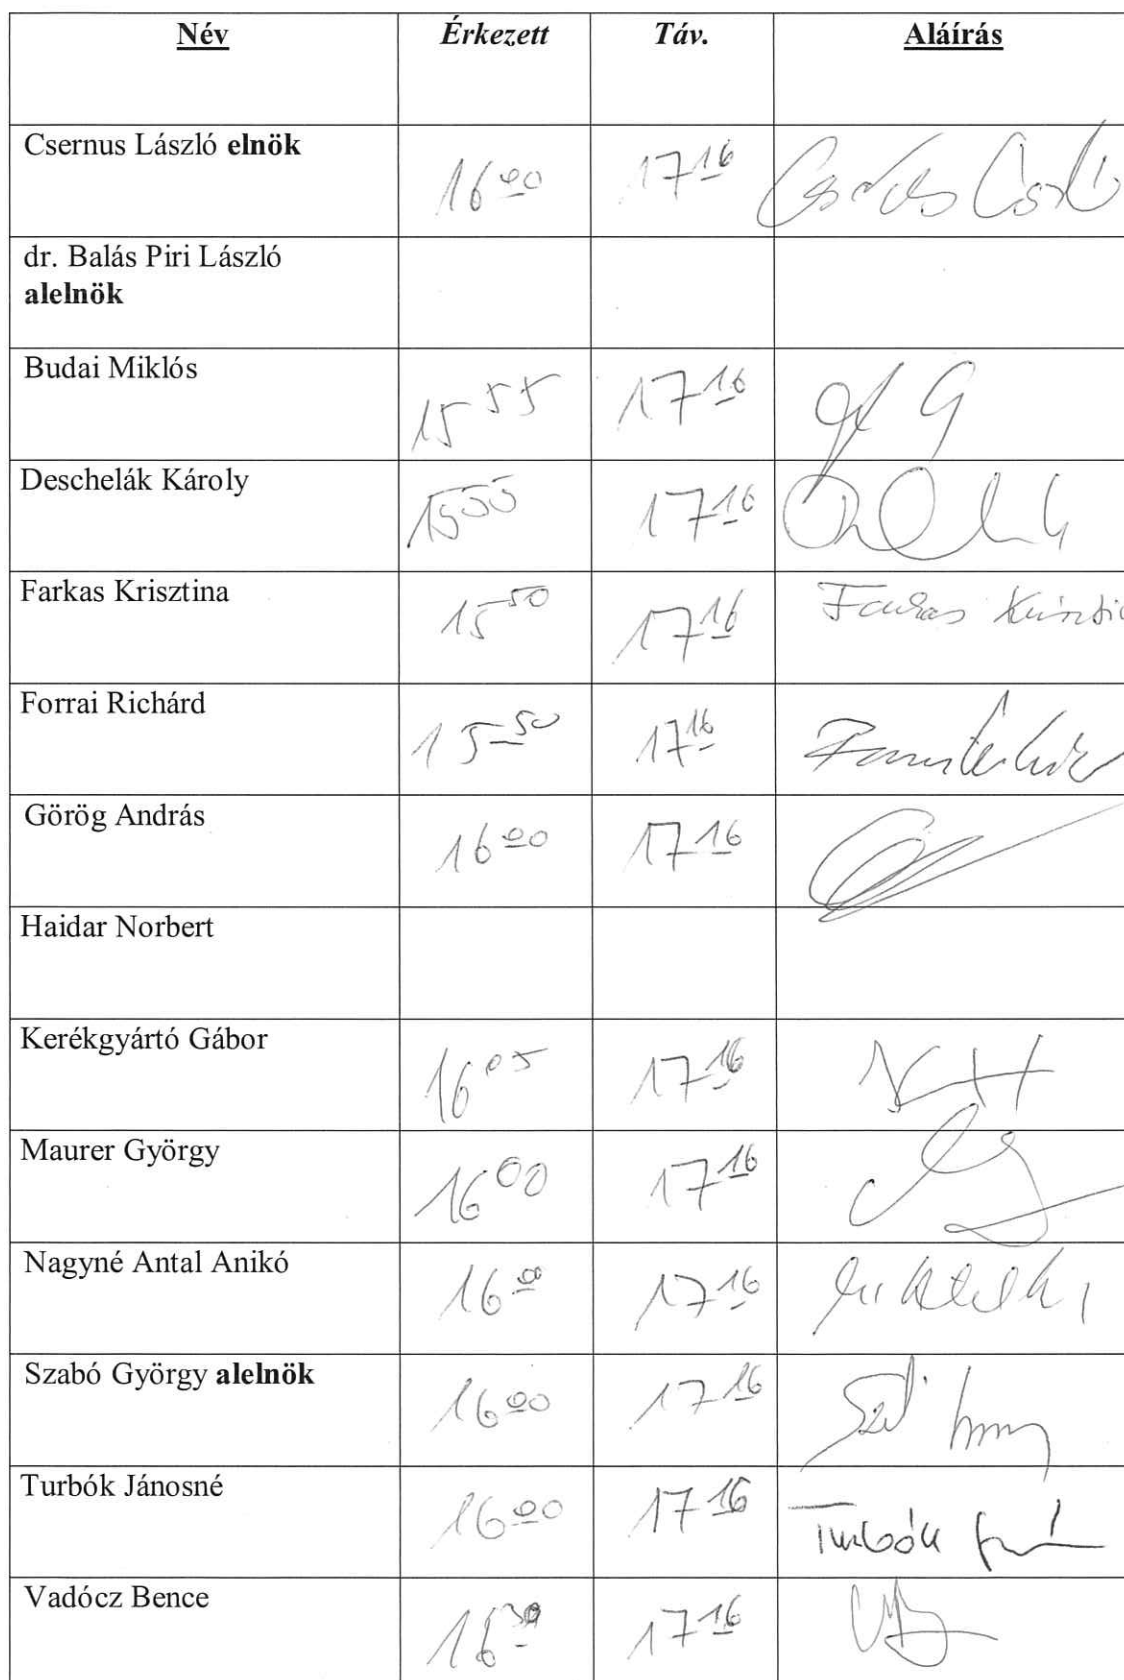 Név Érkezett Táv. Aláírás
Csernus László elnök 16 00 17 16
dr. Balás Piri László
alelnök
Budai Miklós 15 55 17 16
Deschelák Károly 15 55 17 16
Farkas Krisztina 15 50 17 16 Farkas Kriszti
Forrai Richárd 15 50 17 16
Görög András 16 00 17 16
Haidar Norbert
Kerékgyártó Gábor 16 05 17 16
Maurer György 16 00 17 16
Nagyné Antal Anikó 16 00 17 16
Szabó György alelnök 16 00 17 16
Turbók Jánosné 16 00 17 16 Turbók
Vadócz Bence 16 30 17 16